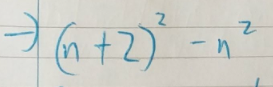 → (n + 2)² - n²